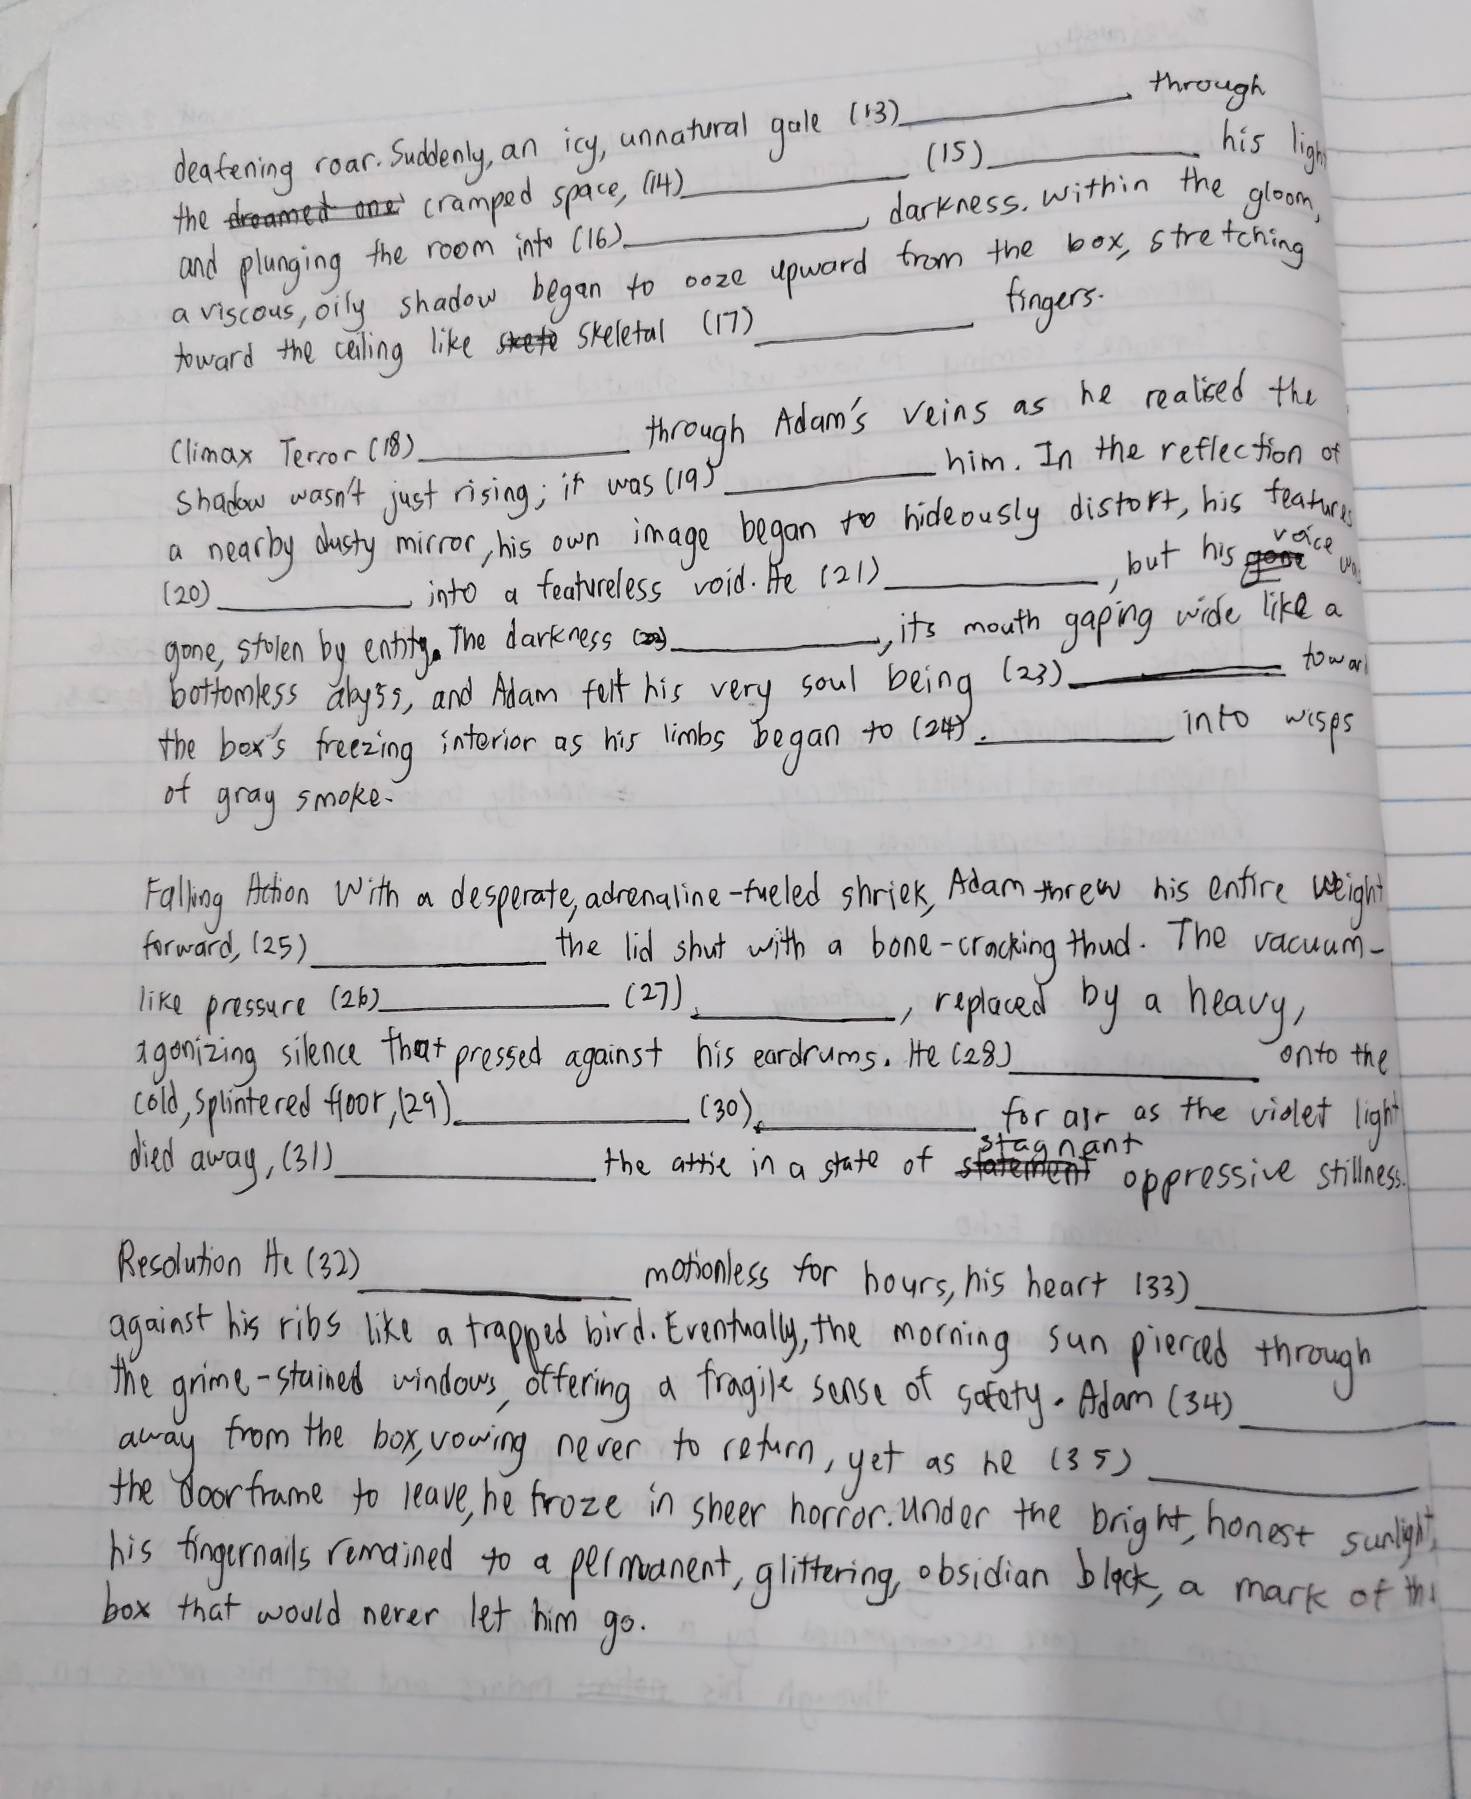 deafening roar. Suddenly, an icy, unnatural gale (13)__________ through
the dreamed one cramped space, (14)__________ (15)__________ his light
and plunging the room into (16)__________, darkness. within the gloom,
a viscous, oily shadow began to ooze upward from the box, stretching
toward the ceiling like skele skeletal (17)__________ fingers.
Climax Terror (18)__________ through Adam's veins as he realised the
shadow wasn't just rising; it was (19)__________ him. In the reflection of
a nearby dusty mirror, his own image began to hideously distort, his features
(20)__________ into a featureless void. He (21)__________, but his gone voice was
gone, stolen by entity. The darkness (22)__________, its mouth gaping wide like a
bottomless abyss, and Adam felt his very soul being (23)__________ towar
the box's freezing interior as his limbs began to (24).__________ into wisps
of gray smoke.
Falling Action With a desperate, adrenaline-fueled shriek, Adam threw his entire weight
forward, (25)__________ the lid shut with a bone-cracking thud. The vacuum-
like pressure (26)__________ (27).__________, replaced by a heavy,
agonizing silence that pressed against his eardrums. He (28)__________ onto the
cold, splintered floor, (29)__________ (30).__________ for air as the violet light
died away, (31)__________ the attic in a state of statement stagnant oppressive stillness.
Resolution He (32)__________ motionless for hours, his heart (33)__________
against his ribs like a trapped bird. Eventually, the morning sun pierced through
the grime-stained windows, offering a fragile sense of safety. Adam (34)__________
away from the box, vowing never to return, yet as he (35)__________
the doorframe to leave, he froze in sheer horror. Under the bright, honest sunlight,
his fingernails remained to a permanent, glittering, obsidian black, a mark of the
box that would never let him go.